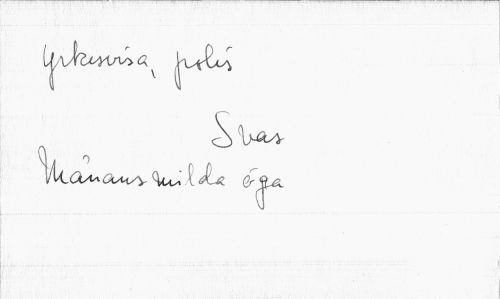 Yrkesvisa, polis
Svas
Månans milda öga